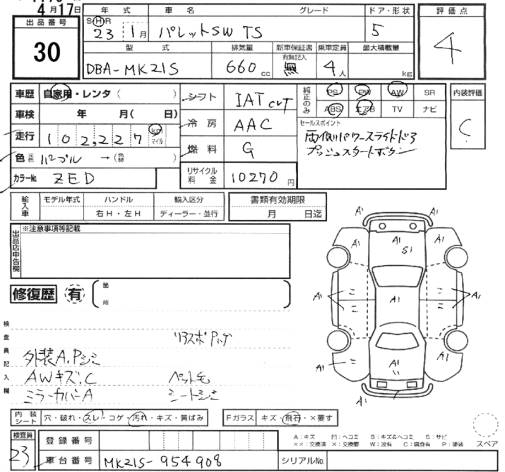 4月17日
出品番号
30
年式 車名 グレード ドア・形状
S H R
23 1月 パレットSW TS 5
型式 排気量 新車保証書 乗車定員 最大積載量
有無記入
DBA-MK21S 660cc 無 4人 kg
評価点
4
車歴 自家用・レンタ ( )
車検 年 月 日
走行 102,227 km マイル
色 パープル → ( )
カラーNo. ZED
シフト IAT CVT
冷房 AAC
燃料 G
リサイクル料金 10270円
純正のみ PS PW AW SR
ABS エアB TV ナビ
セールスポイント
両側パワースライドドア
プッシュスタートボタン
内装評価
C
輸入車 モデル年式 ハンドル 輸入区分
年 右H・左H ディーラー・並行
書類有効期限
月 日迄
出品店申告欄
※注意事項等記載
修復歴 有 箇所
検査員記入欄
リアスポ
外装A.Pシミ
AWキズ.C ペット毛
ミラーカバーA シートシミ
A1 A1 A1
S1
A1 A1 A1
A1 A1
A1
内装シート 穴・破れ・スレ・コゲ・汚れ・キズ・黄ばみ
Fガラス キズ・飛石・×要す
検査員
23
登録番号
車台番号 MK21S-954908
シリアルNo.
A:キズ P:ヘコミ S:サビ
スペア